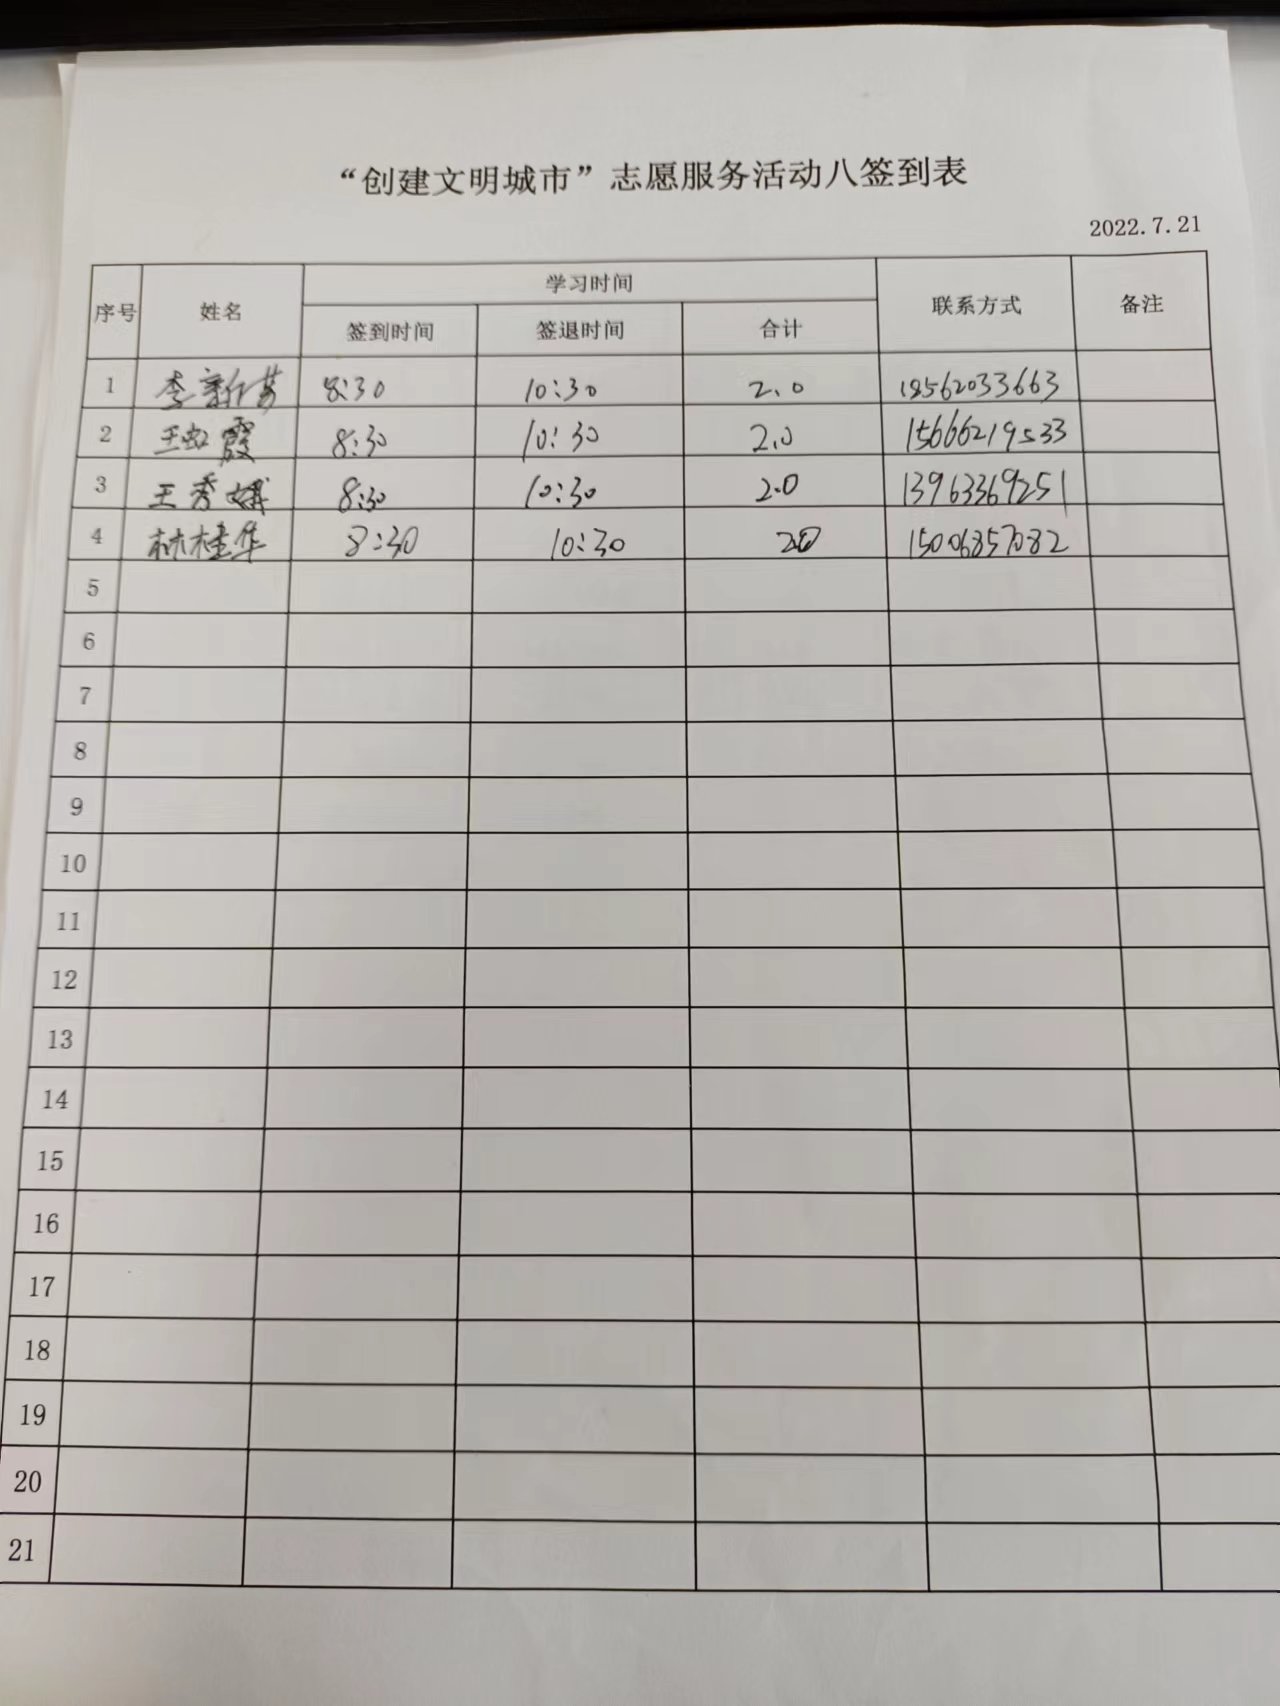 “创建文明城市”志愿服务活动八签到表
2022.7.21
序号 姓名 学习时间 联系方式 备注
签到时间 签退时间 合计
1 李新芳 8:30 10:30 2.0 18562033663
2 王虹霞 8:30 10:30 2.0 15666219533
3 王秀娟 8:30 10:30 2.0 13963369251
4 林桂华 8:30 10:30 2.0 15006857082
5
6
7
8
9
10
11
12
13
14
15
16
17
18
19
20
21